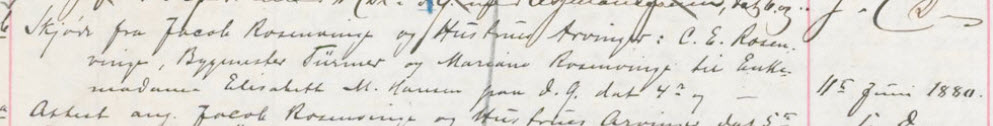 Skjøde fra Jacob Rosenvinge og Hustrues Arvinger: C. E. Rosen-
vinge, Bygmester Türmer og Mariane Rosenvinge til Enke-
madame Elisabeth M. Hansen paa d. G. dat 4de og — 11te Juni 1880.
Attest ang. Jacob Rosenvinge og Hustrues Arvinger dat 5te